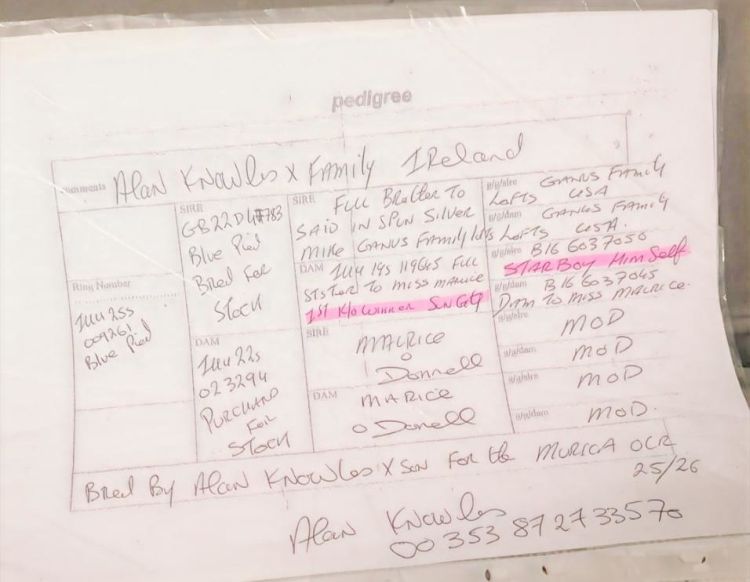 pedigree
comments Alan Knowles x Family Ireland
Ring Number
IHU 25S
009261
Blue Pied
SIRE
GB22D47783
Blue Pied
Bred For
Stock
DAM
IHU 22S
023294
Purchand
For
Stock
SIRE
Full Brother To
Said in Spun Silver
Mike Ganus Family lofts
DAM IHU 19S 119645 Full
Sister to Miss Maurice
1st K/O Winner
SIRE
Maurice
O
Donnell
DAM
Marice
O Donell
g/g/sire Ganus Family
Lofts USA
g/g/dam Ganus Family
Lofts USA.
g/g/sire B16 6037050
Star Boy Him Self
g/g/dam B16 6037045
Dam to Miss Maurice.
g/g/sire MOD
g/g/dam MOD
g/g/sire MOD
g/g/dam MOD.
Bred By Alan Knowles x Son For the Murica OCR
25/26
Alan Knowles
00353 87 2733570